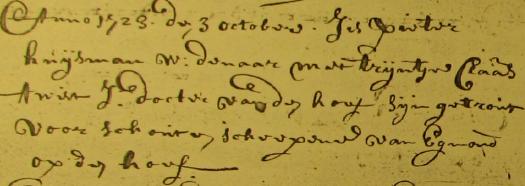 Anno 1723. den 3 october. Is pieter
huijsman w: denaar met trijntje Claas
twet J: docter van den hoef, sijn getrout
voor schout en scheepene van Egmond
op den hoef.